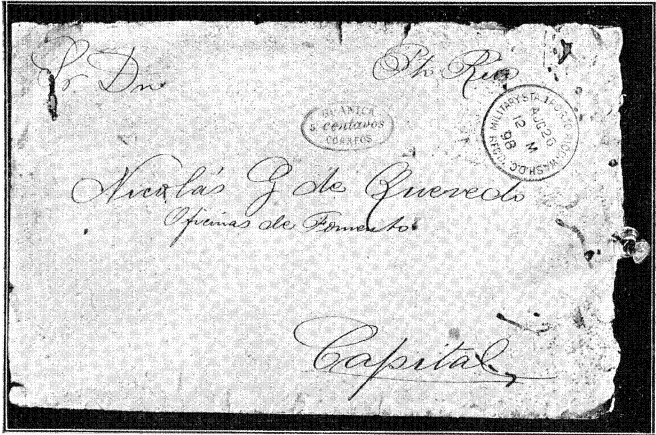 Sr Dn
Pto Rico
GUANICA
5. centavos
CORREOS
MILITARY STA. 1
AUG 20
12 M
98
WASH. D.C.
Nicolás G de Quevedo
Oficinas de Fomento
Capital